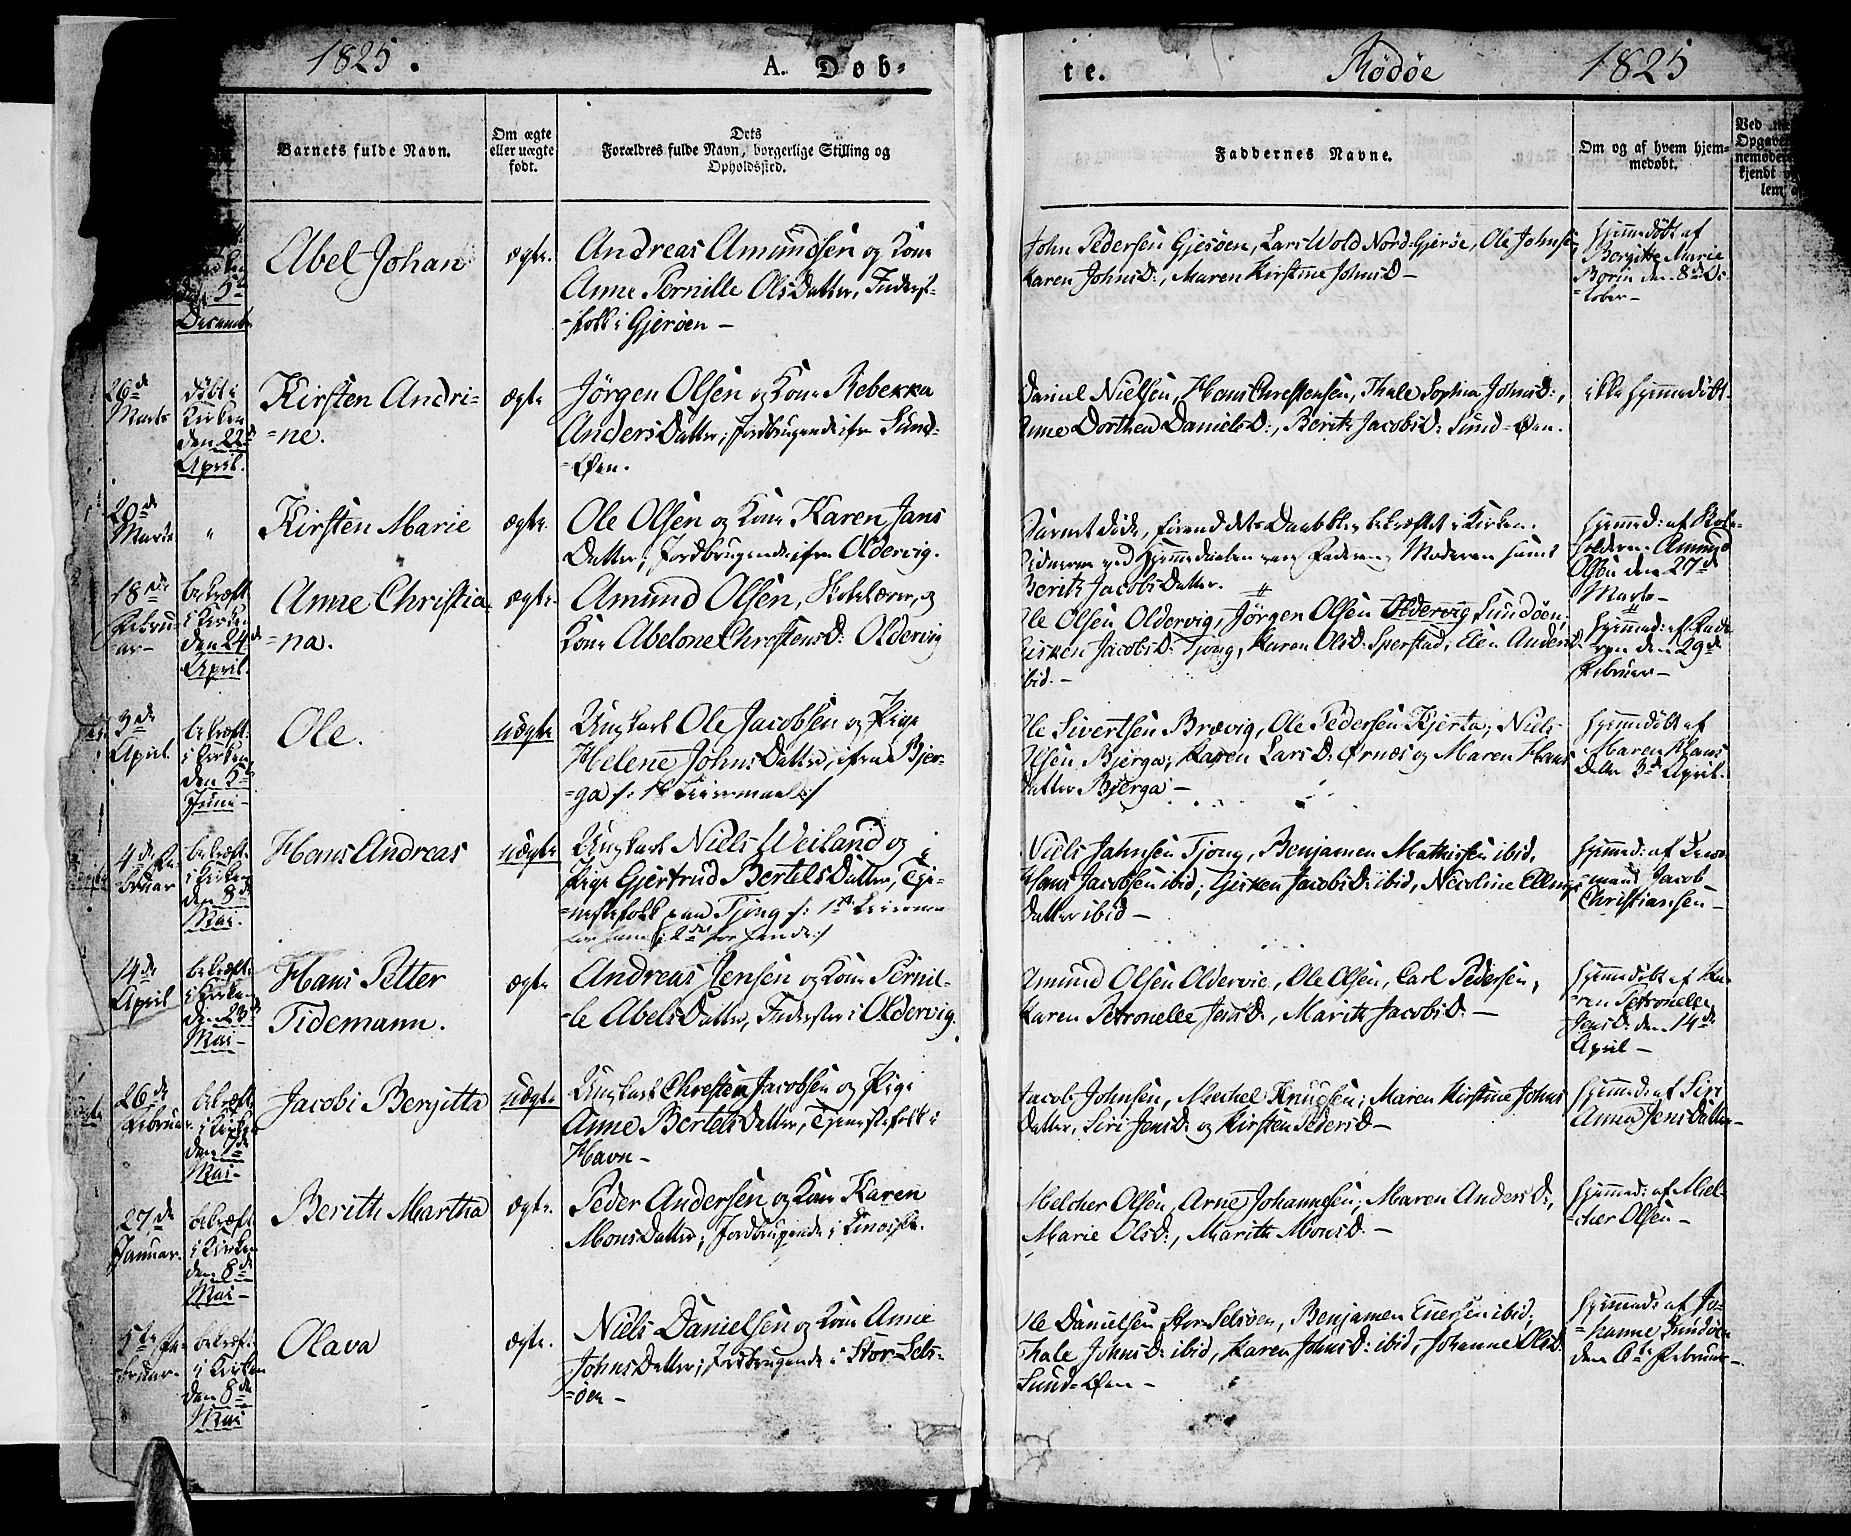 1825.
A. Døb-
te.
Rødøe
1825
Barnets fulde Navn.
Om ægte
eller uægte
født.
Dets
Forældres fulde Navn, borgerlige Stilling og
Opholdssted.
Faddernes Navne.
Om og af hvem hjem-
medøbt.
den 5te
Decemb
Abel Johan
ægte.
Andreas Amundsen og Kone
Anne Pernille OlsDatter, Inderst-
=folk i Gjerøen -
John Pedersen Gjesøen, Lars Wold Nord-Gjerøe, Ole Johnsen
Karen JohnsD:, Maren Kirstine JohnsD -
hjemmedøbt af
Bergitte Marie
Borin den 8de Oc-
=tober -
26d
Marts
døbt i
Kirken
den 22d
April.
Kirsten Andri-
=ne.
ægte
Jörgen Olsen og Kone Rebekka
AndersDatter, Jordbrugende ifra Sund-
=Øen.
Daniel Nielsen, Hans Christensen, Thale Sophia JohnsD:,
Anne Dorthea DanielsD:, Berith JacobsD: Sund=Øen.
ikke hjemmedøbt.
20d
Marts
"
Kirsten Marie
ægte.
Ole Olsen og Kone Karen Jans
Datter, Jordbrugende ifra Oldervig.
Barnet døde, førend dets Daab blev bekræftet i Kirken.
Vidnerne ved Hjemmedaaben var Faderen, Moderen samt
Berith JacobsDatter.
hjemmed: af Skole-
holderen Amund
Olsen den 27de
Marts -
18de
Febru
=ar-
bekræft.
i Kirken
den 24de
April.
Anne Christia-
=na.
ægte.
Amund Olsen, Skolelærer, og
Kone Abelone ChrestensD: Oldervig
Ole Olsen Oldervig, Jörgen Olsen Oldervig Sundöen,
Girken JacobsD: Tjong, Karen OlsD: Sperstad, Elen AndersD:
ibid. -
hjemmed: af Fade-
ren den 29de
Februar -
3de
April
bekræft.
i Kirken
den 5te
Juni -
Ole.
uægte
Ungkarl Ole Jacobsen og Pige
Helene JohnsDatter, ifra Bjer-
=ga /: 1ste Leiermaal :/
Ole Sivertsen Brævig, Ole Pedersen Kjerta, Niels
Olsen Bjerga, Karen LarsD: Ørnæs og Maren Hans
Datter Bjerga -
hjemmedøbt af
Maren Hans
Datter 3de April.
4de Fe-
bruar
bekræft.
i Kirken
den 8de
Mai.
Hans Andreas
uægte
Ungkarl Niels Weiland og
Pige Gjertrud BertelsDatter, Tje-
=nestefolk paa Tjong /: 1ste Leierma
for ham, 2det for hende :/
Niels Jahnsen Tjong, Benjamen Mathissen ibid,
Hans Jacobsen ibid, Girken JacobsD: ibid, Nicoline Ellings
Datter ibid -
hjemmed: af Lens-
=mand Jacob
Christiansen -
14de
April
bekræft.
i Kirken
den 23de
Mai -
Hans Petter
Tidemann.
ægte
Andreas Jensen og Kone Pernil-
le AbelsDatter, Inderster i Oldervig.
Amund Olsen Oldervig, Ole Olsen, Carl Pedersen,
Karen Petronelle JensD:, Marith JacobsD: -
hjemmedøbt af Ka-
ren Petronelle
JensD: den 14de
April -
26de
Februar
bekræft.
i Kirken
den 7de
Mai -
Jacobi Bergitta
uægte
Ungkarl Chresten Jacobsen og Pige
Anne BertelsDatter, Tjenestefolk i
Havn -
Jacob Johnsen, Meckel Knudsen, Maren Kirstine Johns
Datter, Siri JensD: og Kirsten PedersD -
hjemmed: af Siri
Anna JensDatter -
27de
Januar.
bekræft.
i Kirken
den 8de
Mai -
Berith Martha
ægte.
Peder Andersen og Kone Karen
MonsDatter, Jordbrugende i
Melcher Olsen, Arne Johannesen, Maren AndersD:,
Marie OlsD:, Marith MonsD. -
hjemmed: af Mel-
=cher Olsen -
5te Fe-
bruar
bekræft.
i Kirken
den 8de
Mai
Olava
ægte.
Niels Danielsen og Kone Anne
JohnsDatter, Jordbrugende i Stor-Sels-
=öen -
Ole Danielsen Stor-Selsöen, Benjamen Enersen ibid,
Thale JohnsD: ibid, Karen JohnsD: ibid, Johanne OlsD:
Sund=Øen -
hjemmed: af Jo-
=hanne Sundöen
den 6te Februar -